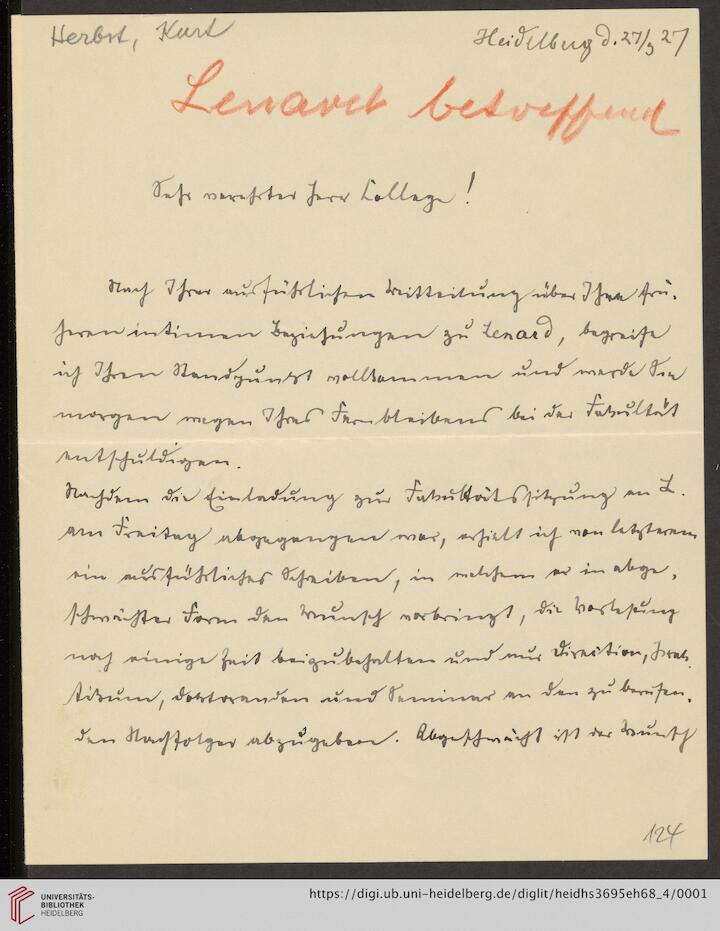 Herbst, Kurt
Heidelberg d. 27/3 27
Lenard betreffend
Sehr verehrter Herr College!
Nach Ihrer ausführlichen Mitteilung über Ihre frü-
heren intimen Beziehungen zu Lenard, begreife
ich Ihren Standpunkt vollkommen und werde Sie
morgen wegen Ihres Fernbleibens bei der Fakultät
entschuldigen.
Nachdem die Einladung zur Fakultätssitzung an L.
am Freitag abgegangen war, erhielt ich von letzterem
ein ausführliches Schreiben, in welchem er in abge-
schwächter Form den Wunsch vorbringt, die Vorlesung
noch einige Zeit beizubehalten und nur Direction, Prak-
tikum, Doktoranden und Seminar an den zu berufen-
den Nachfolger abzugeben. Abgeschwächt ist der Wunsch
124
UNIVERSITÄTS-
BIBLIOTHEK
HEIDELBERG
https://digi.ub.uni-heidelberg.de/diglit/heidhs3695eh68_4/0001